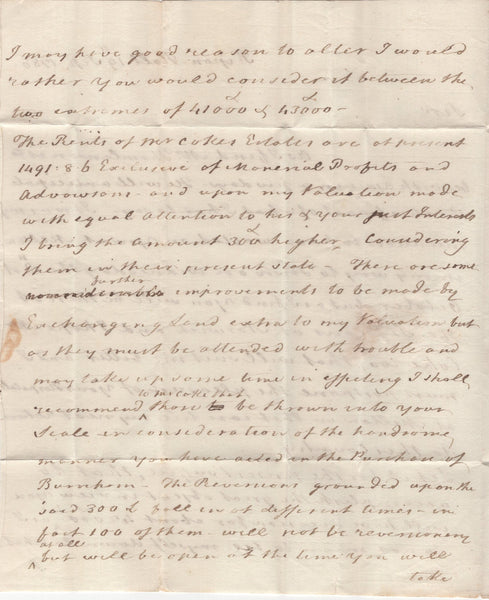 I may have good reason to alter I would
rather you would consider it between the
two extremes of 41000£ & 43000£ -
The Rents of Mr Cokes Estates are at present
1491:8:6 Exclusive of Manerial Profits and
Advowsons - and upon my Valuation made
with equal attention to his & your just Interests
I bring the amount 300£ higher Considering
them in their present state. There are some
further
improvements to be made by
Exchanging Land extra to my Valuation but
as they must be attended with trouble and
may take up some time in effecting I shall
to Mr Coke that
recommend those to be thrown into your
Scale in consideration of the handsome
manner you have acted in the Purchase of
Burnham - The Reversions grounded upon the
said 300£ fall in at different times - in
fact 100 of them will not be reversionary
at all
but will be open at the time you will
take